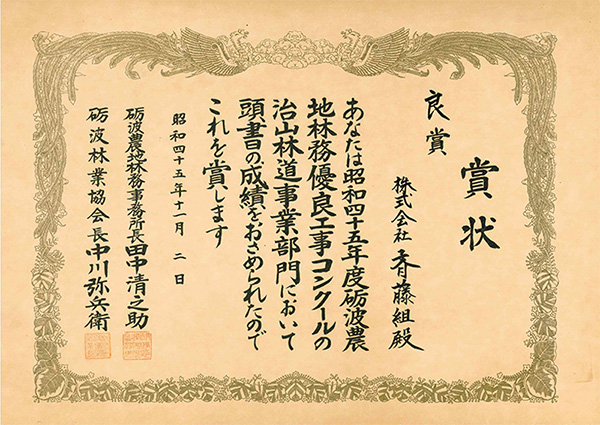 賞状
良賞
株式会社 斉藤組殿
あなたは昭和四十五年度砺波農
地林務優良工事コンクールの
治山林道事業部門において
頭書の成績をおさめられたので
これを賞します
昭和四十五年十一月 二日
砺波農地林務事務所長 田中清之助
砺波林業協会長 中川弥兵衛